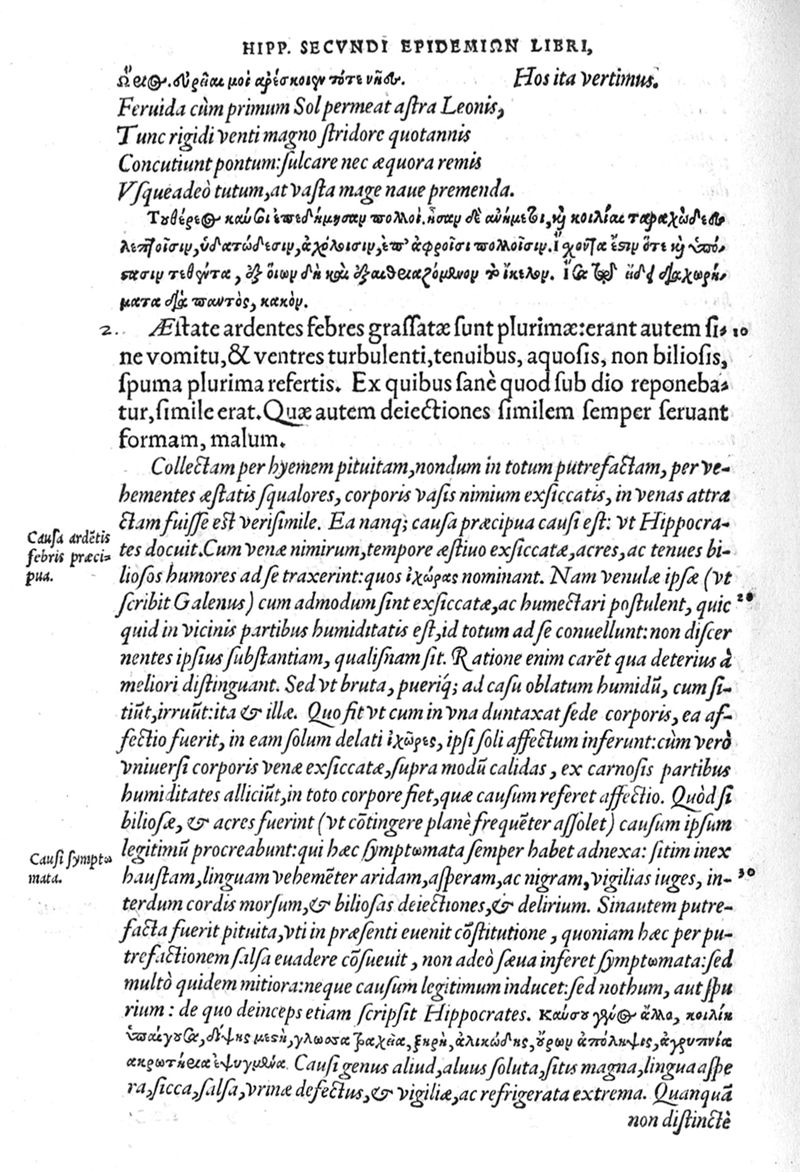 HIPP. SECVNDI EPIDEMIΩN LIBRI,
Hos ita vertimus.
Feruida cùm primum Sol permeat astra Leonis,
Tunc rigidi venti magno stridore quotannis
Concutiunt pontum: sulcare nec æquora remis
Vsqueadeò tutum, at vasta mage naue premenda.
Τοῦ θέρεος καῦσοι ἐπεδήμησαν πολλοί. ἦσαν δὲ ἀνήμετοι, καὶ κοιλίαι ταραχώδεες
λεπτοῖσιν, ὑδατώδεσιν, ἀχόλοισιν, ἐπ' ἀφροῖσι πολλοῖσιν.
κακόν.
2. Æstate ardentes febres grassatæ sunt plurimæ: erant autem si- 10
ne vomitu, & ventres turbulenti, tenuibus, aquosis, non biliosis,
spuma plurima refertis. Ex quibus sanè quod sub dio reponeba-
tur, simile erat. Quæ autem deiectiones similem semper seruant
formam, malum.
Collectam per hyemem pituitam, nondum in totum putrefactam, per ve-
hementes æstatis squalores, corporis vasis nimium exsiccatis, in venas attra
ctam fuisse est verisimile. Ea nanq; causa præcipua causi est: vt Hippocra-
Causa ardẽtis
febris præci-
pua.
tes docuit. Cum venæ nimirum, tempore æstiuo exsiccatæ, acres, ac tenues bi-
liosos humores ad se traxerint: quos ἰχώρας nominant. Nam venulæ ipsæ (vt
scribit Galenus) cum admodum sint exsiccatæ, ac humectari postulent, quic 20
quid in vicinis partibus humiditatis est, id totum ad se conuellunt: non discer
nentes ipsius substantiam, qualisnam sit. Ratione enim carẽt qua deterius à
meliori distinguant. Sed vt bruta, pueriq́; ad casu oblatum humidũ, cum si-
tiũt, irruũt: ita & illæ. Quo fit vt cum in vna duntaxat sede corporis, ea af-
fectio fuerit, in eam solum delati ἰχῶρες, ipsi soli affectum inferunt: cùm verò
vniuersi corporis venæ exsiccatæ, supra modũ calidas, ex carnosis partibus
humiditates alliciũt, in toto corpore fiet, quæ causum referet affectio. Quòd si
biliosæ, & acres fuerint (vt cõtingere planè frequẽter assolet) causum ipsum
Causi sympto
mata.
legitimũ procreabunt: qui hæc symptωmata semper habet adnexa: sitim inex
haustam, linguam vehemẽter aridam, asperam, ac nigram, vigilias iuges, in- 30
terdum cordis morsum, & biliosas deiectiones, & delirium. Sin autem putre-
facta fuerit pituita, vti in præsenti euenit cõstitutione, quoniam hæc per pu-
trefactionem salsa euadere cõsueuit, non adeò sæua inferet symptωmata: sed
multò quidem mitiora: neque causum legitimum inducet: sed nothum, aut spu
rium: de quo deinceps etiam scripsit Hippocrates. Καύσου γένος ἄλλο, κοιλίη
ὑπάγουσα, δίψης μεστὴ, γλῶσσα τραχεῖα, ξηρὴ, ἁλικώδης, οὔρων ἀπόληψις, ἀγρυπνία
ἀκρωτήρια ἐψυγμένα. Causi genus aliud, aluus soluta, sitis magna, lingua aspe
ra, sicca, salsa, vrinæ defectus, & vigiliæ, ac refrigerata extrema. Quanquã
non distinctè